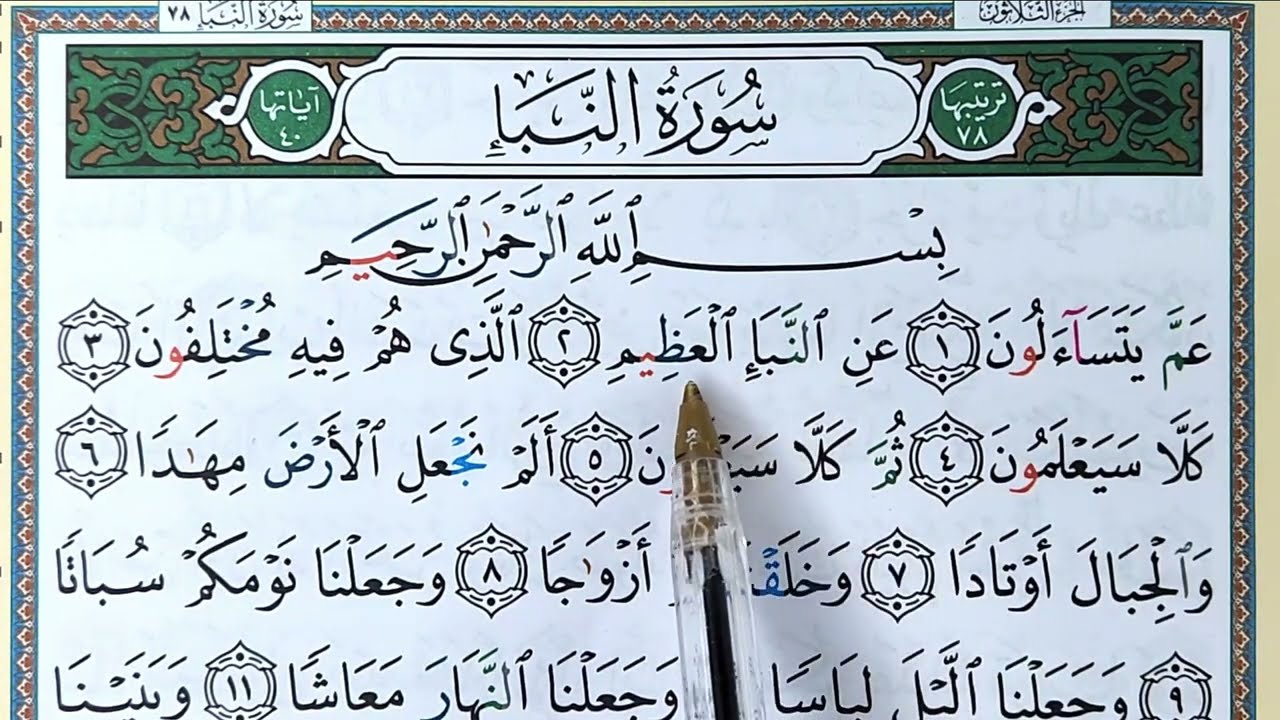 الجزء الثلاثون
سُورَةُ النَّبَإِ ٧٨
ترتيبها ٧٨
سُورَةُ النَّبَإِ
آياتها ٤٠
بِسْمِ ٱللَّهِ ٱلرَّحْمَٰنِ ٱلرَّحِيمِ
عَمَّ يَتَسَآءَلُونَ ١ عَنِ ٱلنَّبَإِ ٱلْعَظِيمِ ٢ ٱلَّذِى هُمْ فِيهِ مُخْتَلِفُونَ ٣
كَلَّا سَيَعْلَمُونَ ٤ ثُمَّ كَلَّا ٥ أَلَمْ نَجْعَلِ ٱلْأَرْضَ مِهَٰدًا ٦
وَٱلْجِبَالَ أَوْتَادًا ٧ أَزْوَٰجًا ٨ وَجَعَلْنَا نَوْمَكُمْ سُبَاتًا
٩ وَجَعَلْنَا ٱلَّيْلَ لِبَاسًا وَجَعَلْنَا ٱلنَّهَارَ مَعَاشًا ١١ وَبَنَيْنَا